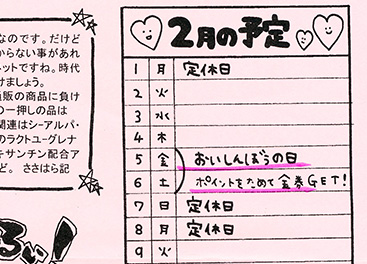 なのです。だけど
からない事があれ
ネットですね。時代
けましょう。
販の商品に負け
の一押しの品は
関連はシーアルパ・
のラクトユーグレナ
キサンチン配合ア
ど。 ささはら記
2月の予定
1 月 定休日
2 火
3 水
4 木
5 金 おいしんぼうの日
6 土 ポイントをためて金券GET!
7 日 定休日
8 月 定休日
9 火